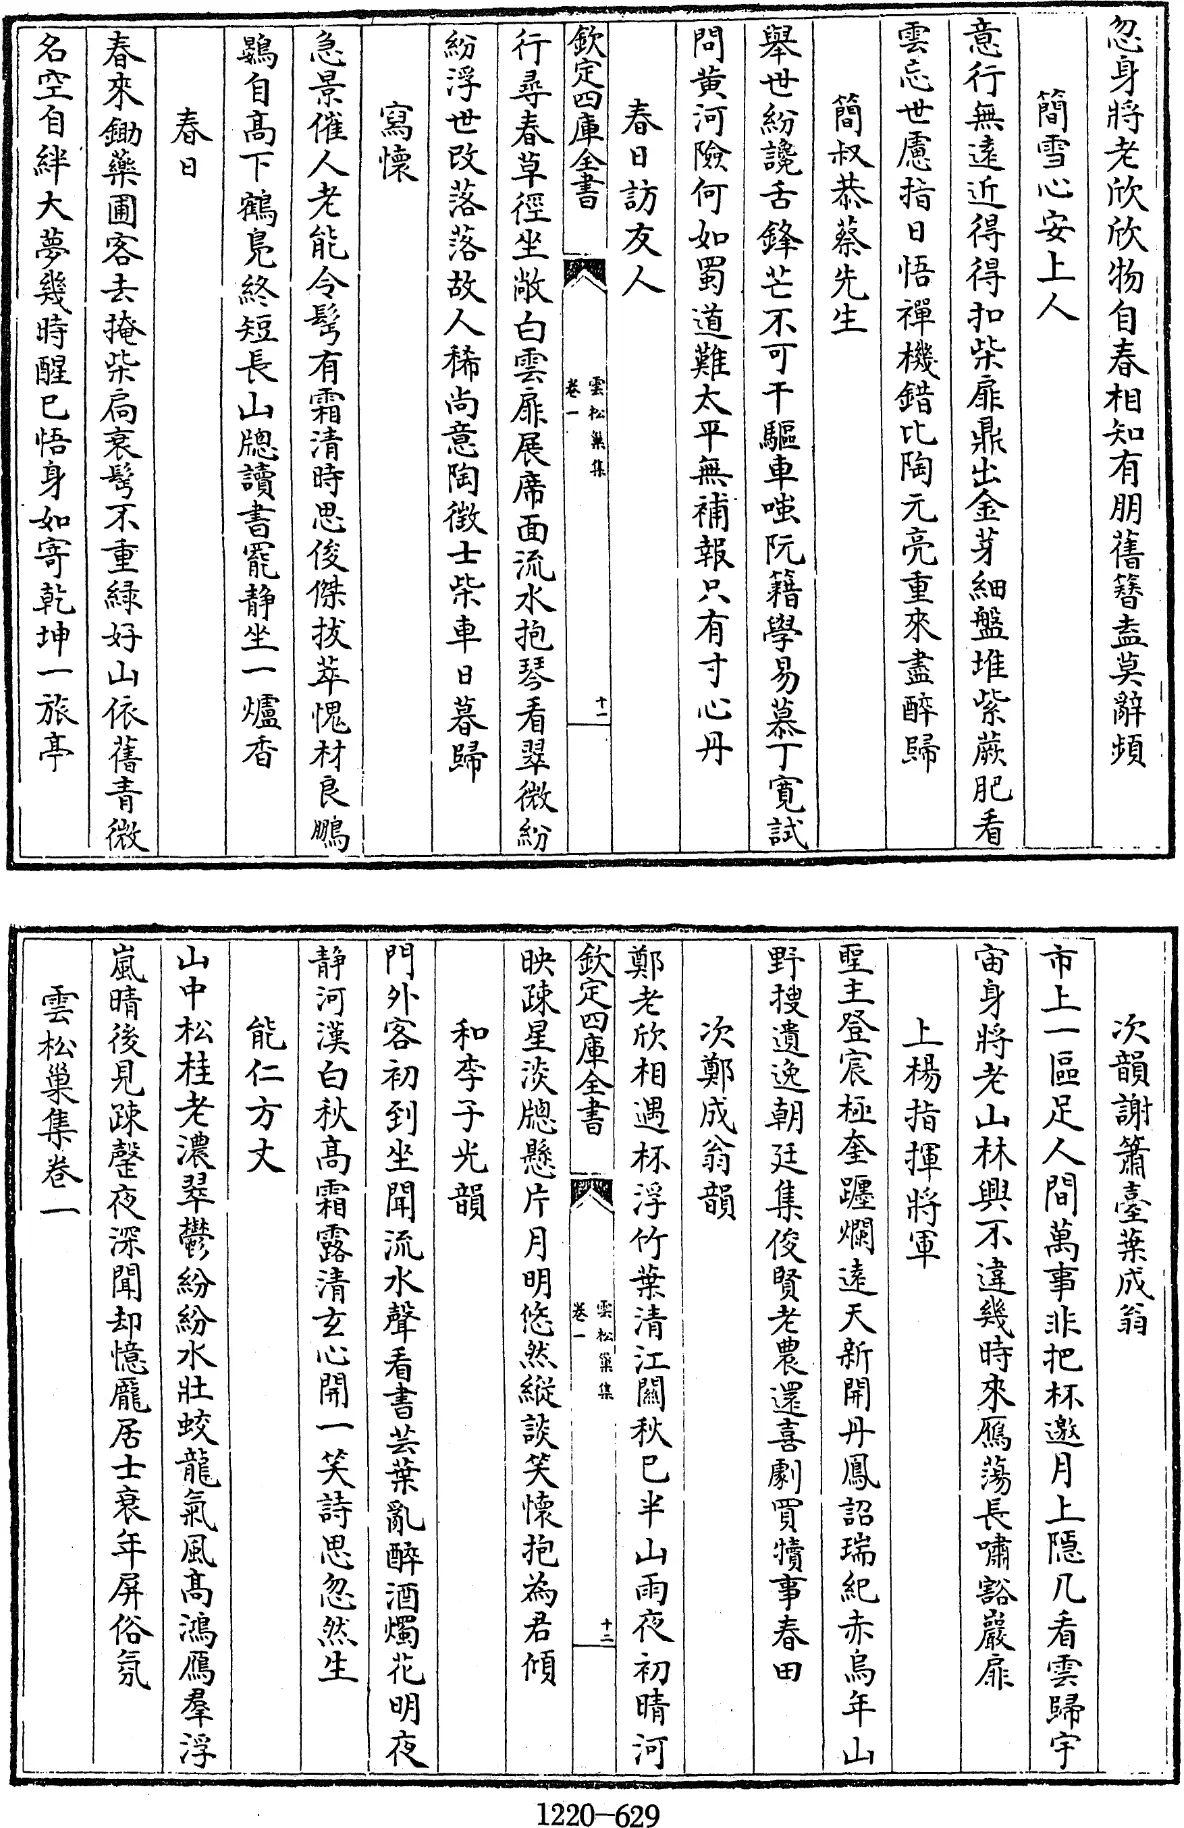 忽身將老欣欣物自春相知有朋舊簪盍莫辭頻
簡雪心安上人
意行無遠近得得扣柴扉鼎出金芽細盤堆紫蕨肥看
雲忘世慮指日悟禪機錯比陶元亮重來盡醉歸
簡叔恭蔡先生
舉世紛讒舌鋒芒不可干驅車嗤阮籍學易慕丁寬試
問黄河險何如蜀道難太平無補報只有寸心丹
春日訪友人
欽定四庫全書
雲松巢集
卷一
十一
行尋春草徑坐敞白雲扉展席面流水抱琴看翠微紛
紛浮世改落落故人稀尚意陶徵士柴車日暮歸
寫懷
急景催人老能令髩有霜清時思俊傑拔萃愧材良鵬
鷃自髙下鶴鳬終短長山牕讀書罷静坐一爐香
春日
春來鋤藥圃客去掩柴扃衰髩不重緑好山依舊青微
名空自絆大夢幾時醒已悟身如寄乾坤一旅亭
次韻謝簫臺葉成翁
市上一區足人間萬事非把杯邀月上隱几看雲歸宇
宙身將老山林興不違幾時來鴈蕩長嘯豁巖扉
上楊指揮將軍
聖主登宸極奎躔爛遠天新開丹鳳詔瑞紀赤烏年山
野搜遺逸朝廷集俊賢老農還喜劇買犢事春田
次鄭成翁韻
鄭老欣相遇杯浮竹葉清江關秋已半山雨夜初晴河
欽定四庫全書
雲松巢集
卷一
十二
映疎星淡牕懸片月明悠然縱談笑懷抱為君傾
和李子光韻
門外客初到坐聞流水聲看書芸葉亂醉酒燭花明夜
静河漢白秋髙霜露清玄心開一笑詩思忽然生
能仁方丈
山中松桂老濃翠鬱紛紛水壯蛟龍氣風髙鴻鴈羣浮
嵐晴後見疎磬夜深聞却憶龎居士衰年屏俗氛
雲松巢集卷一
1220-629